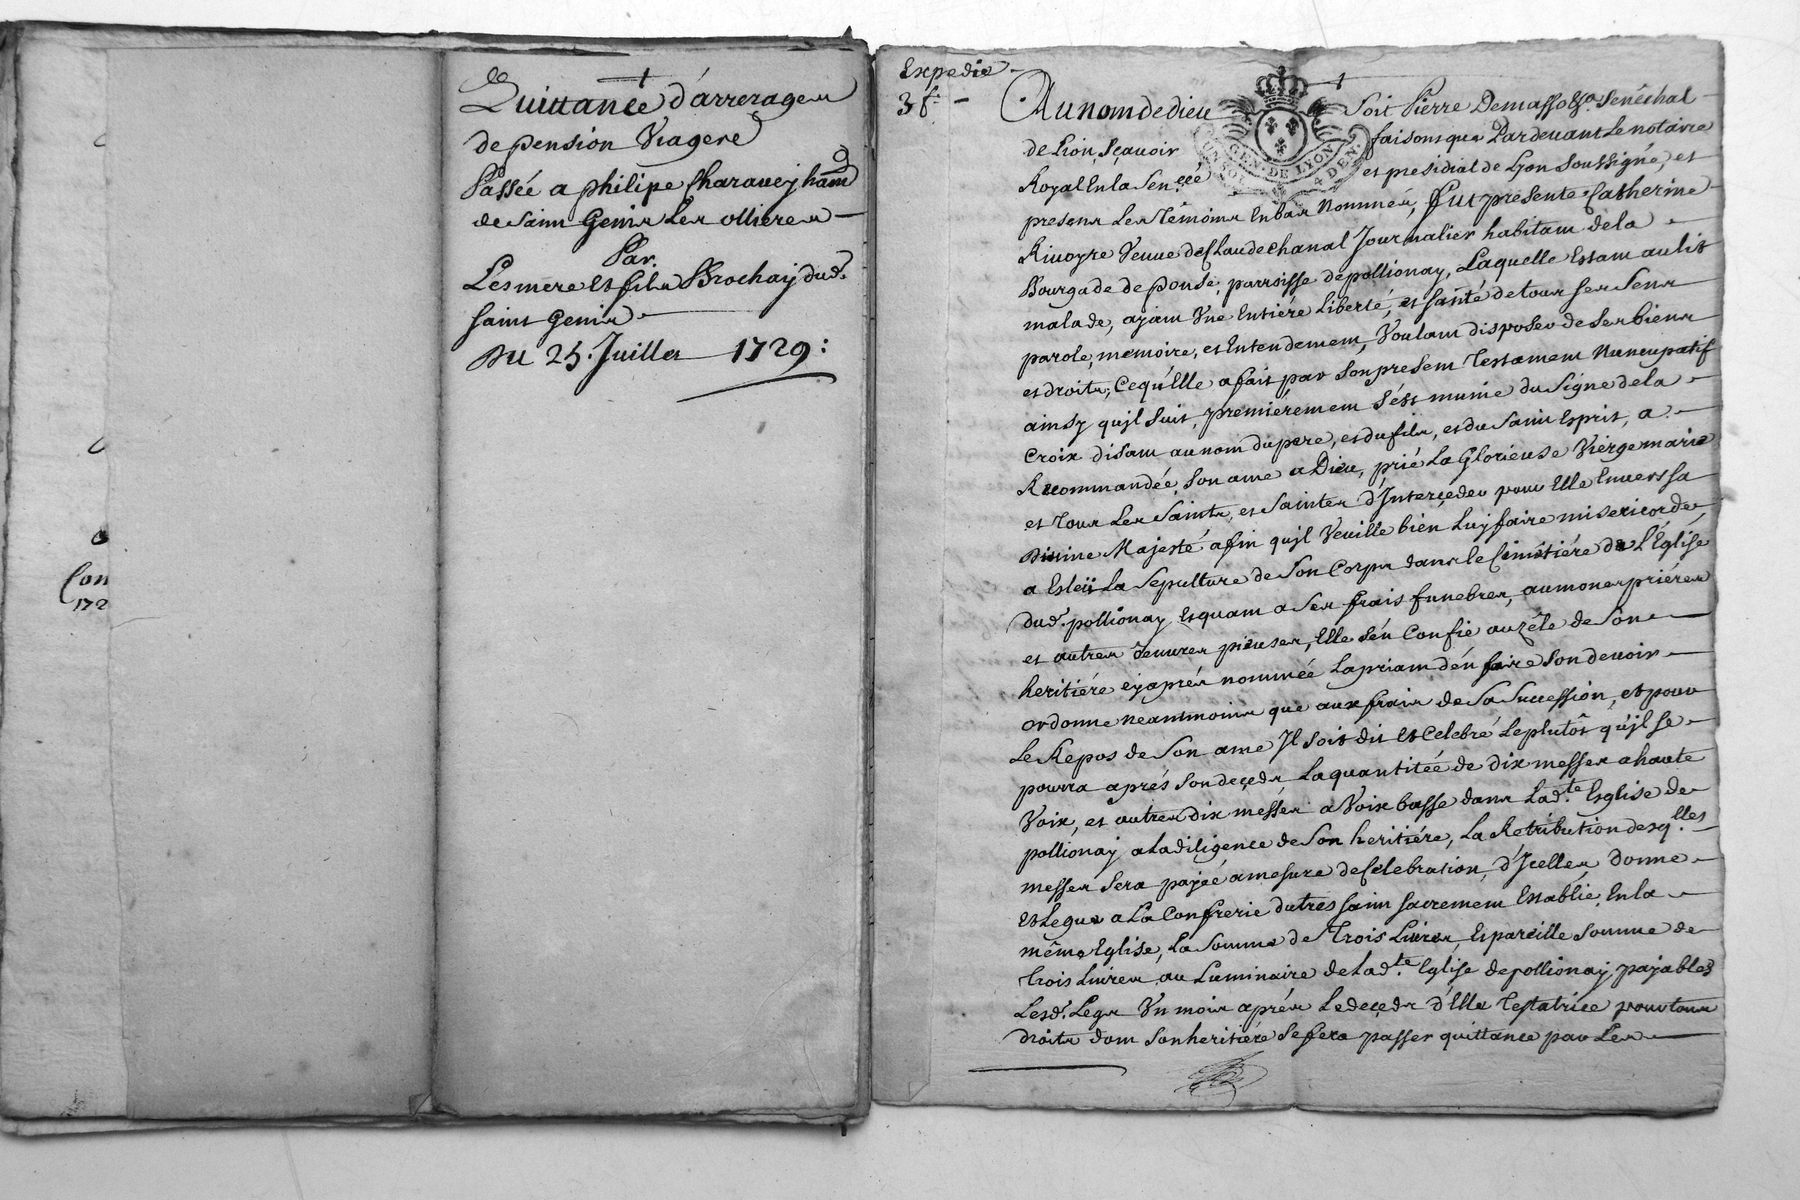 Con
172
Quittance d'arrerages
de pension Viagere
Passée a philipe Charavey ham
de Saint Genis Les ollieres
Par.
Les mere et fils Brochay dud.
saint Genis
Du 25. Juillet 1729:
Expedié
3 f.
GEN. DE LYON
Au nom de dieu Soit Pierre Demasso Esq. Senéchal
de Lion, sçavoir faisons que Pardevant Le notaire
Royal En la Sen.ceé et presidial de Lyon Soussigné, et
presens Les Témoins En bas Nommés, Fut presente Catherine
Rivoyre Veuve de Claude chanal Journalier habitant de la
Bourgade de ponse, parroisse de pollionay, Laquelle Estant au lit
malade, ayant Une Entiére Liberté, et santé de tous ses Sens
parole, memoire, et Entendement, Voulant disposer de Ses biens
et droits, Ce qu'Elle a fait par Son present Testament Nuncupatif
ainsy quil Suit, premiérement S'est munie du Signe de la
Croix disant au nom du pere, et du fils, et du Saint Esprit, a
Recommandée Son ame a Dieu, prié La Glorieuse Viérge marie
et Tous Les Saints, et Saintes d'Interçeder pour Elle Envers sa
Divine Majesté afin qu'jl Veuille bien Luy faire misericorde,
a Esleü La Sepulture de Son Corps dans le Cimétiére de L'Église
dud. pollionay Et quant a Ses frais funebres, aumones priéres
et autres œuvres pieuses, Elle S'én Confie au zéle de Son
heritiére cy aprés nommée La priant d'én faire Son devoir
ordonne neantmoins que aux frais de Sa Succession, et pour
Le Repos de Son ame Jl Soit dit Et Celebré Le plutôt qu'jl Se
pourra aprés Son deçeds La quantitée de dix messes a haute
Voix, et autres dix messes a Voix basse dans Lad.te Esglise de
pollionay a La diligence de Son heritiére, La Retribution desq.lles
messes Sera payée a mesure de Celebration, d'Jcelles, donne
Et Legue a La Confrerie du tres saint sacrement Establie En la
même Eglise, La Somme de Trois Livres, Et pareille Somme de
Trois Livres au Luminaire de Lad.te Eglise de pollionay, payables
Lesd. Legs Un mois aprés Le deçeds d'Elle Testatrice pour tous
droits dont Son heritiére Se fera passer quittance par Les